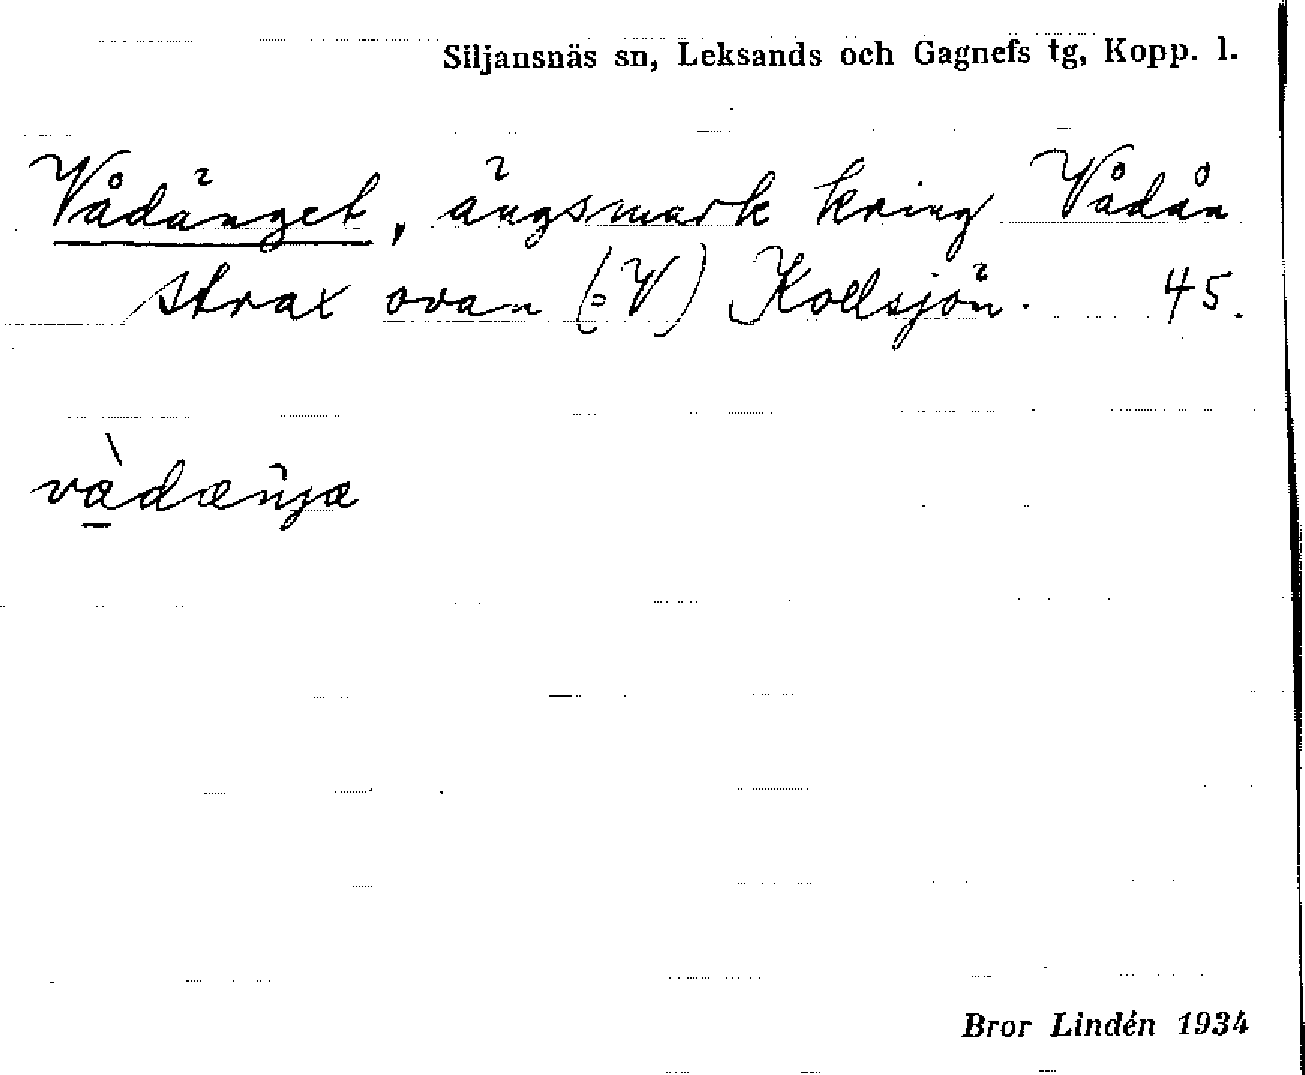 Siljansnäs sn, Leksands och Gagnefs tg, Kopp. l.
Vådänget, ängsmark kring Vådån
strax ovan (:V) Kollsjön. 45.
Bror Lindén 1934